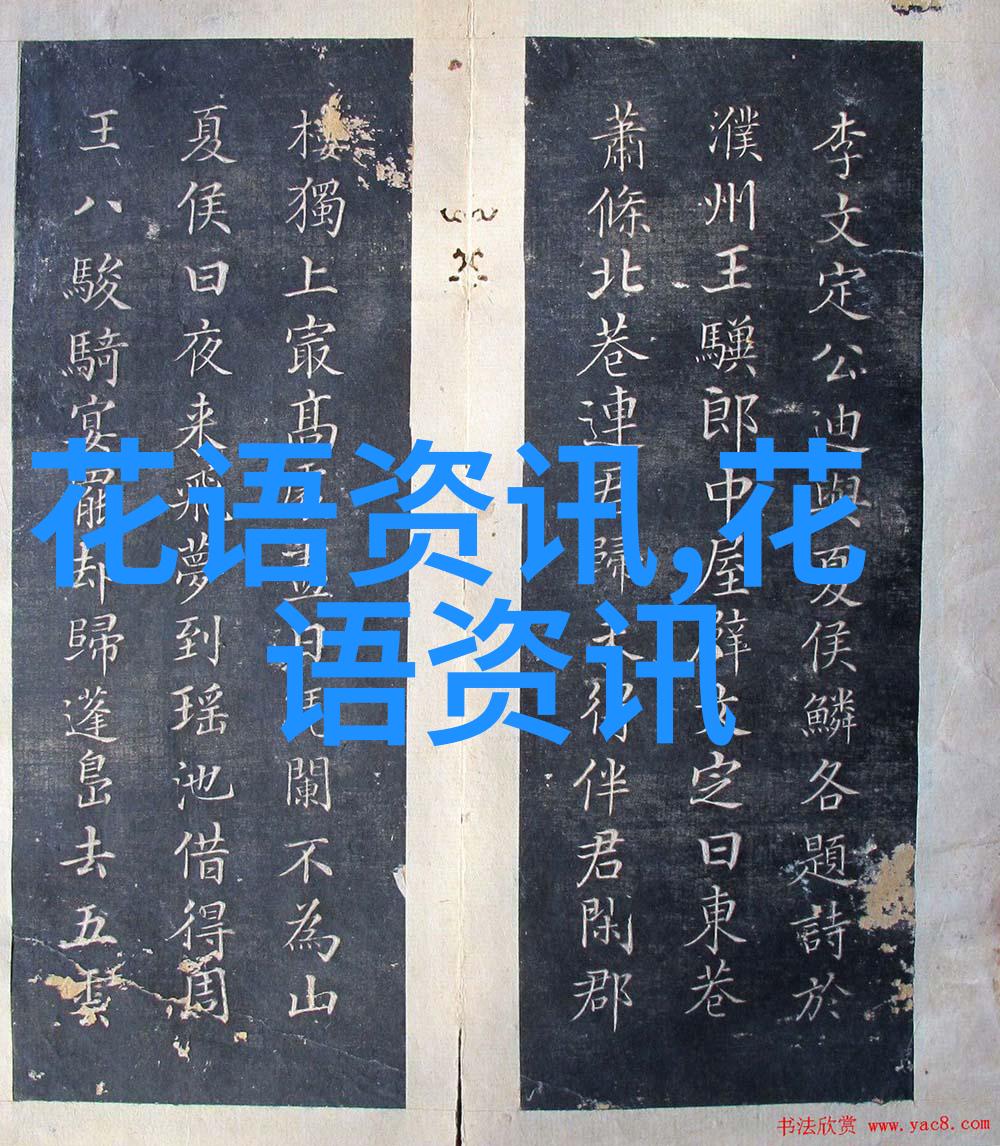 李文定公迪與夏侯鱗各題詩於
濮州王驥郎中屋文定曰東巷
蕭條北巷連歸得伴君閑郡
樓獨上寂高盡日闌不為山
夏侯曰夜来飛夢到瑶池借得周
王八駿騎宴罷却歸蓬島去五雲
花语资讯,花
语资讯
书法欣赏 www.yac8.com